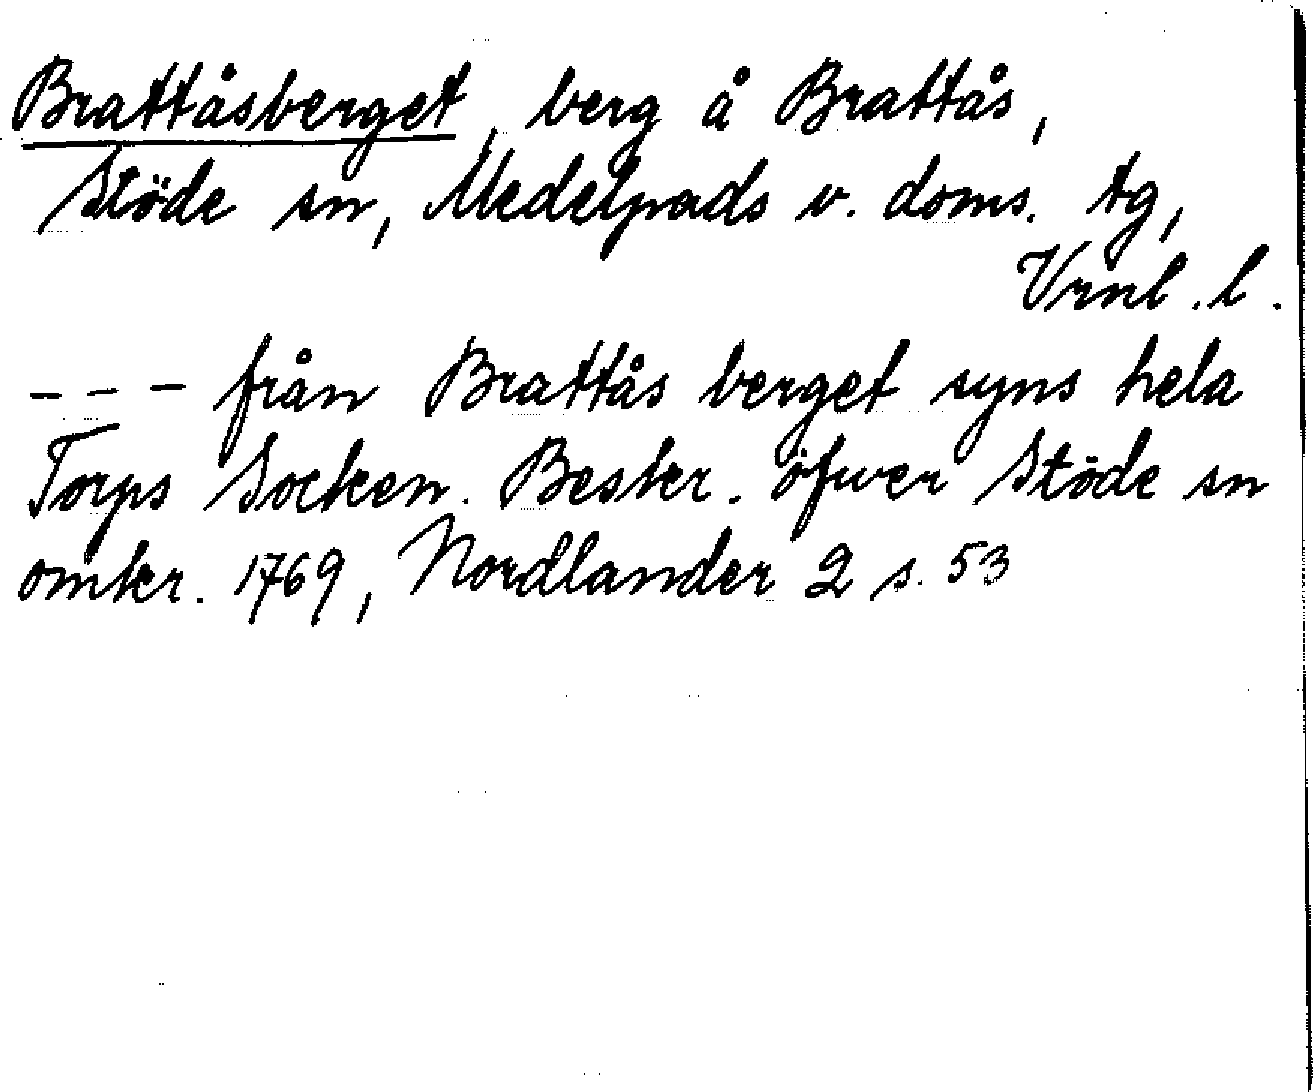 Brattåsberget, berg å Brattås,
Stöde sn, Medelpads v. doms. tg,
Vrnl. l.
--- från Brattås berget syns hela
Torps Socken. Beskr. öfwer Stöde sn
omkr. 1769, Nordlander 2 s. 53